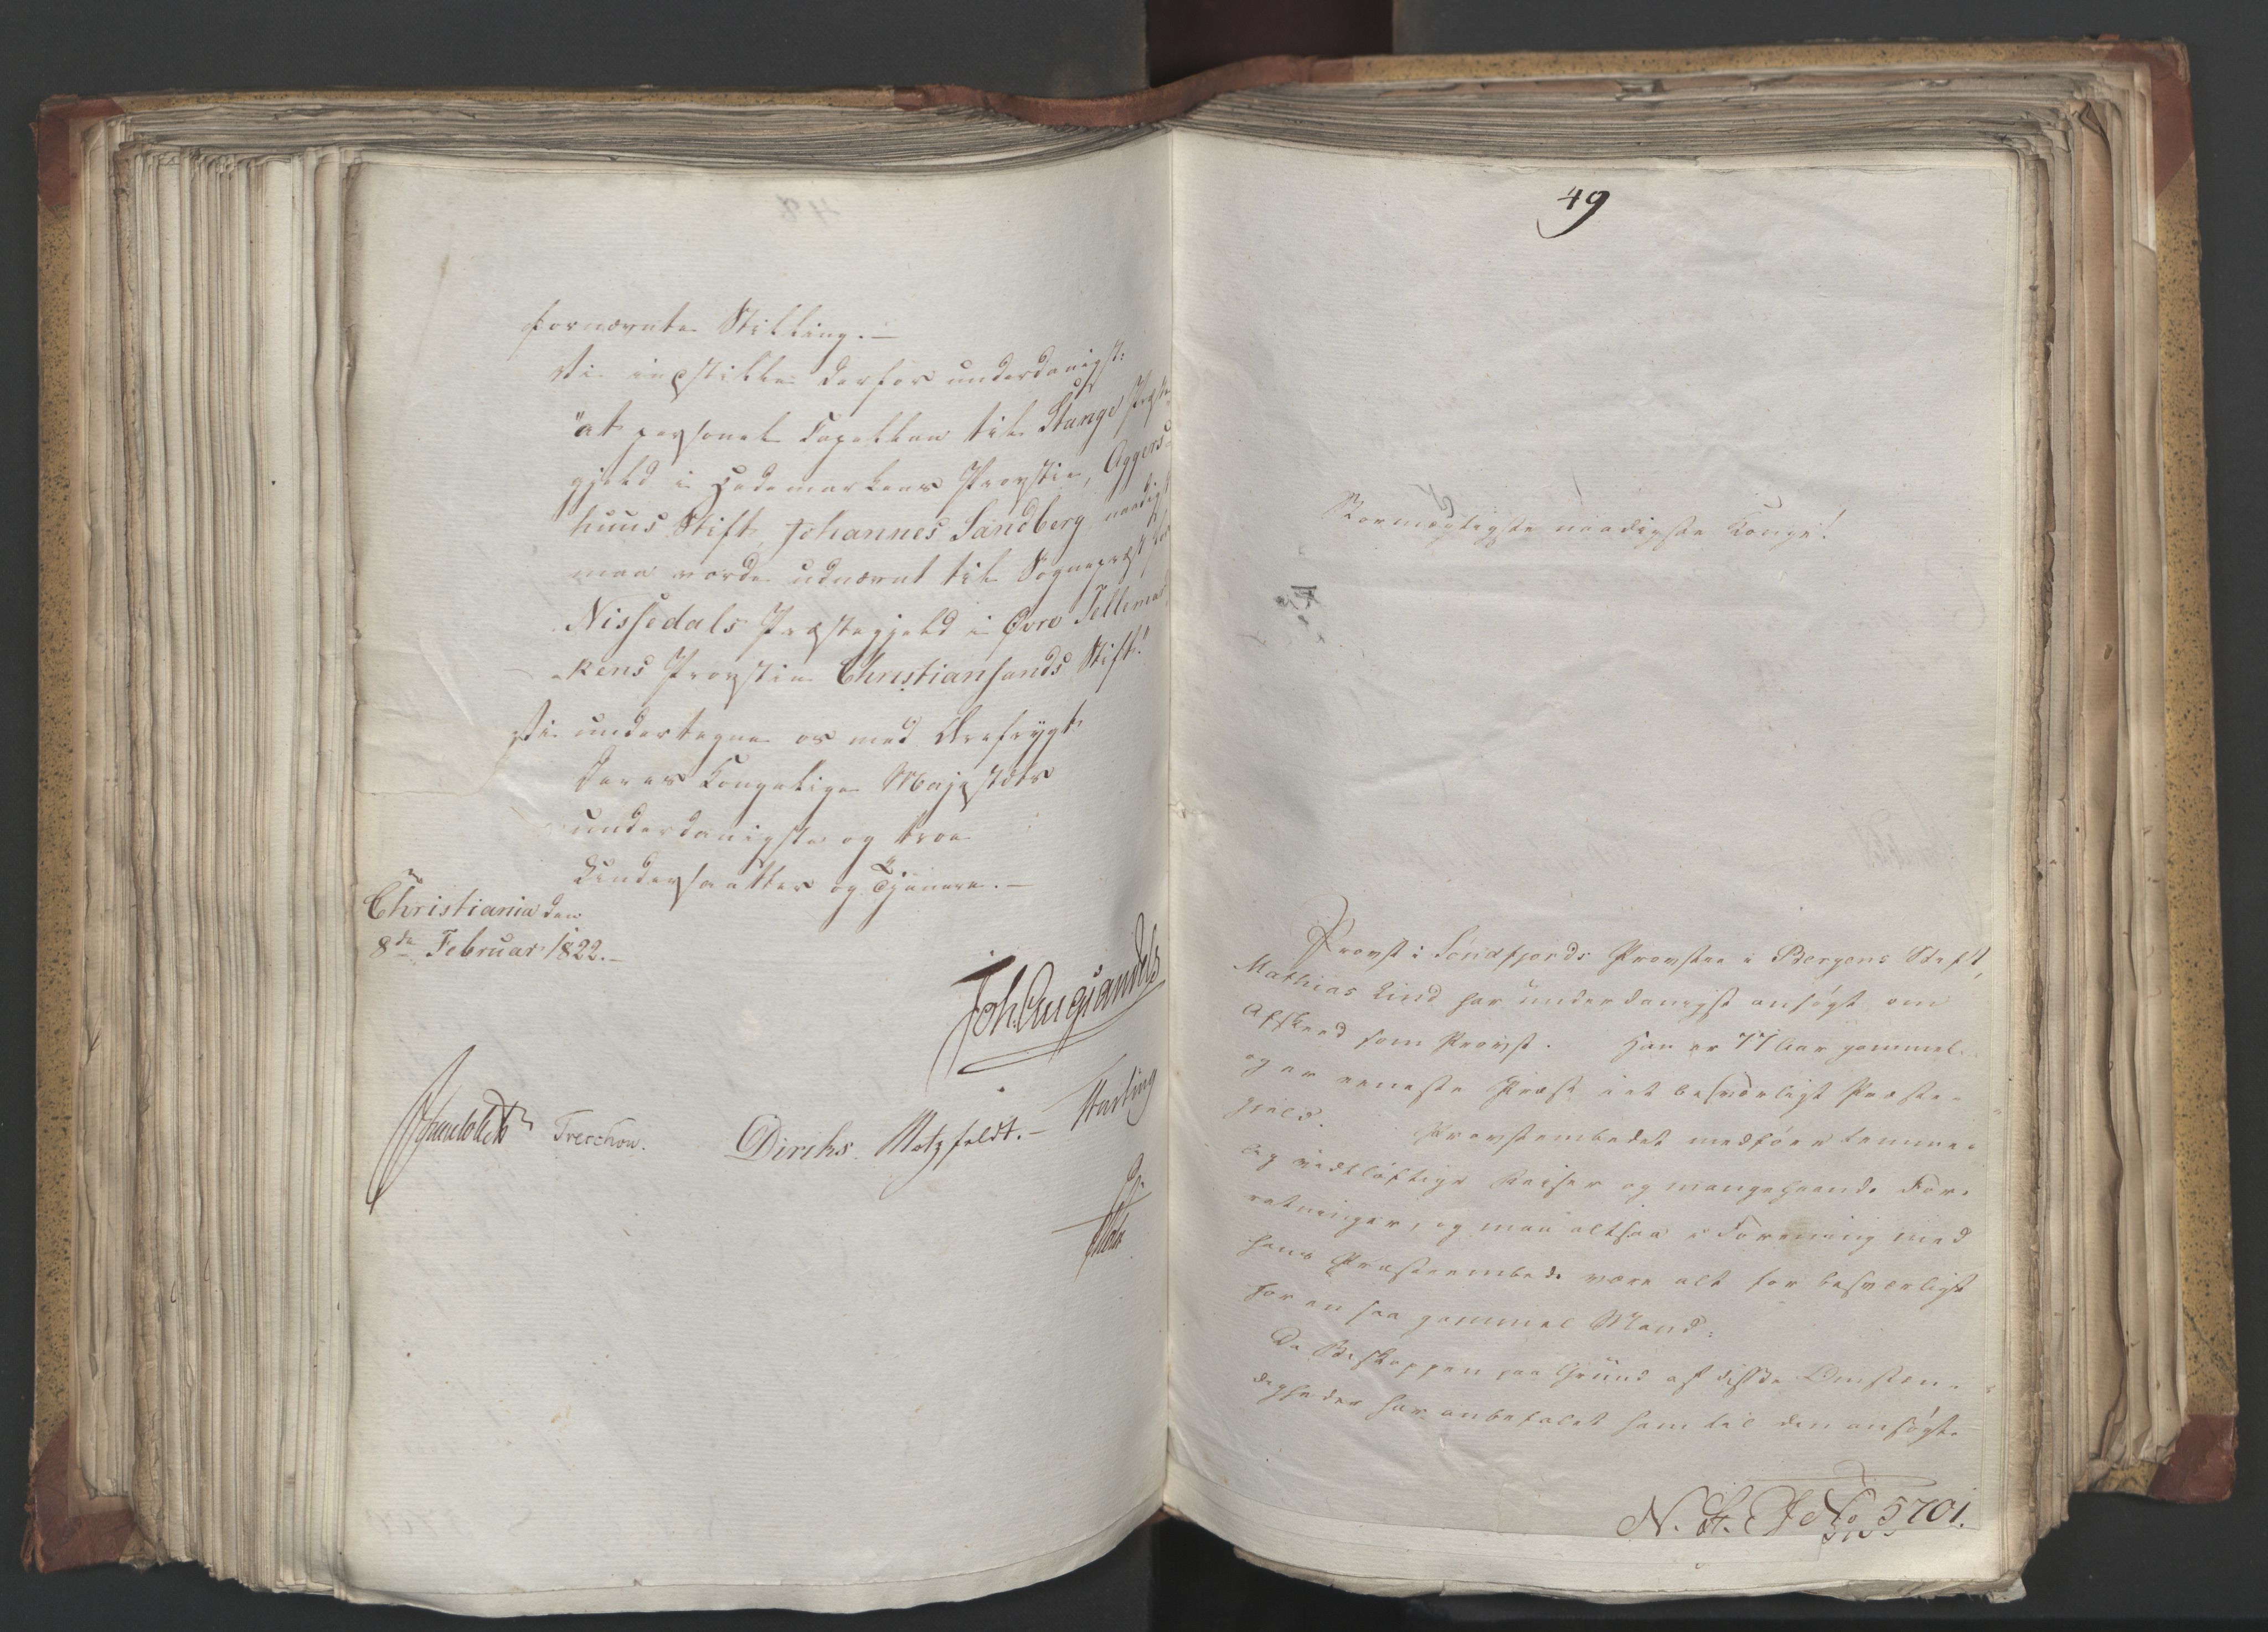 fornævnte Stilling.—
Vi indstille derfor underdanigst:
"at personel Capellan til Stange Præste-
gjeld i Hedemarkens Provstie, Aggers-
huus Stift, Johannes Sandberg naadigst
maa vorde udnævnt til Sognepræst for
Nissedals Præstegjeld i Øvre Tellemar-
kens Provstie Christiansands Stift."
Vi undertegne os med Ærefrygt
Deres Kongelige Majestæts
underdanigste og troe
Undersaatter og Tjenere.—
Christiania den
8de Februar 1822.—
Joh. Aug. Sandels
Sommerhielm Treschow. Diriks. Motzfeldt.— Fasting
49
Stormægtigste naadigste Konge!
Provst i Søndfjords Provstie i Bergens Stift,
Mathias Lind har underdanigst ansøgt om
Afskeed som Provst. Han er 77 Aar gammel
og er eeneste Præst i et besværligt Præste-
gjeld. Provstembedet medfører temme-
lig vidtløftige Reiser og mangehaande For-
retninger, og maa altsaa i Forening med
hans Præsteembede være alt for besværligt
for en saa gammel Mand.
Da Biskoppen paa Grund af disse Omstæn-
digheder har anbefalet ham til den ansøgte
N. St. J. No 5701.